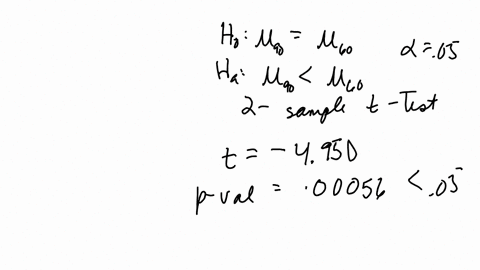 H₀: μ₉₀ = μ₆₀
α = .05
Hₐ: μ₉₀ < μ₆₀
2- sample t-Test
t = -4.950
p-val = .00056 < .05